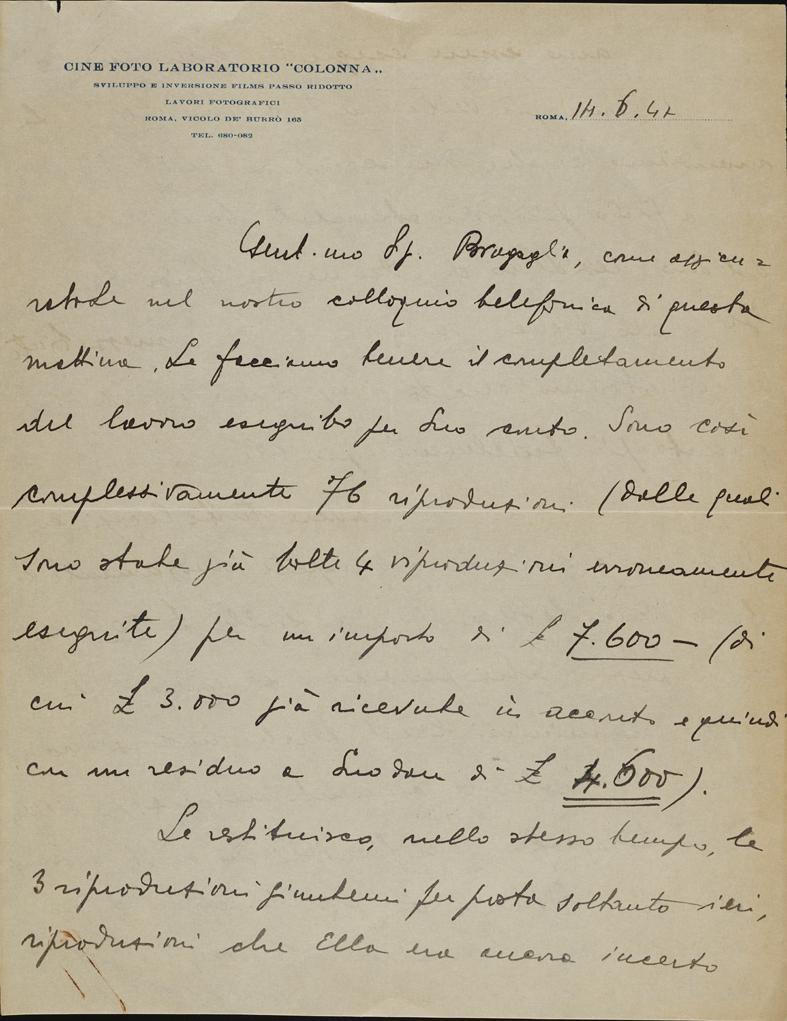 CINE FOTO LABORATORIO "COLONNA„
SVILUPPO E INVERSIONE FILMS PASSO RIDOTTO
LAVORI FOTOGRAFICI
ROMA, VICOLO DE' BURRÒ 165
TEL. 680-082
ROMA, 14.6.41
Gent.mo Sg. Bragaglia, come assicu=
ratole nel nostro colloquio telefonico di questa
mattina, Le facciamo tenere il completamento
del lavoro eseguito per Suo conto. Sono così
complessivamente 76 riproduzioni (dalle quali
sono state già tolte 4 riproduzioni erroneamente
eseguite) per un importo di £ 7.600 — (di
cui £ 3.000 già ricevute in acconto e quindi
con un residuo a Suo dare di £ 4.600).
Le restituisco, nello stesso tempo, le
3 riproduzioni giuntemi per posta soltanto ieri,
riproduzioni che Ella era ancora incerto